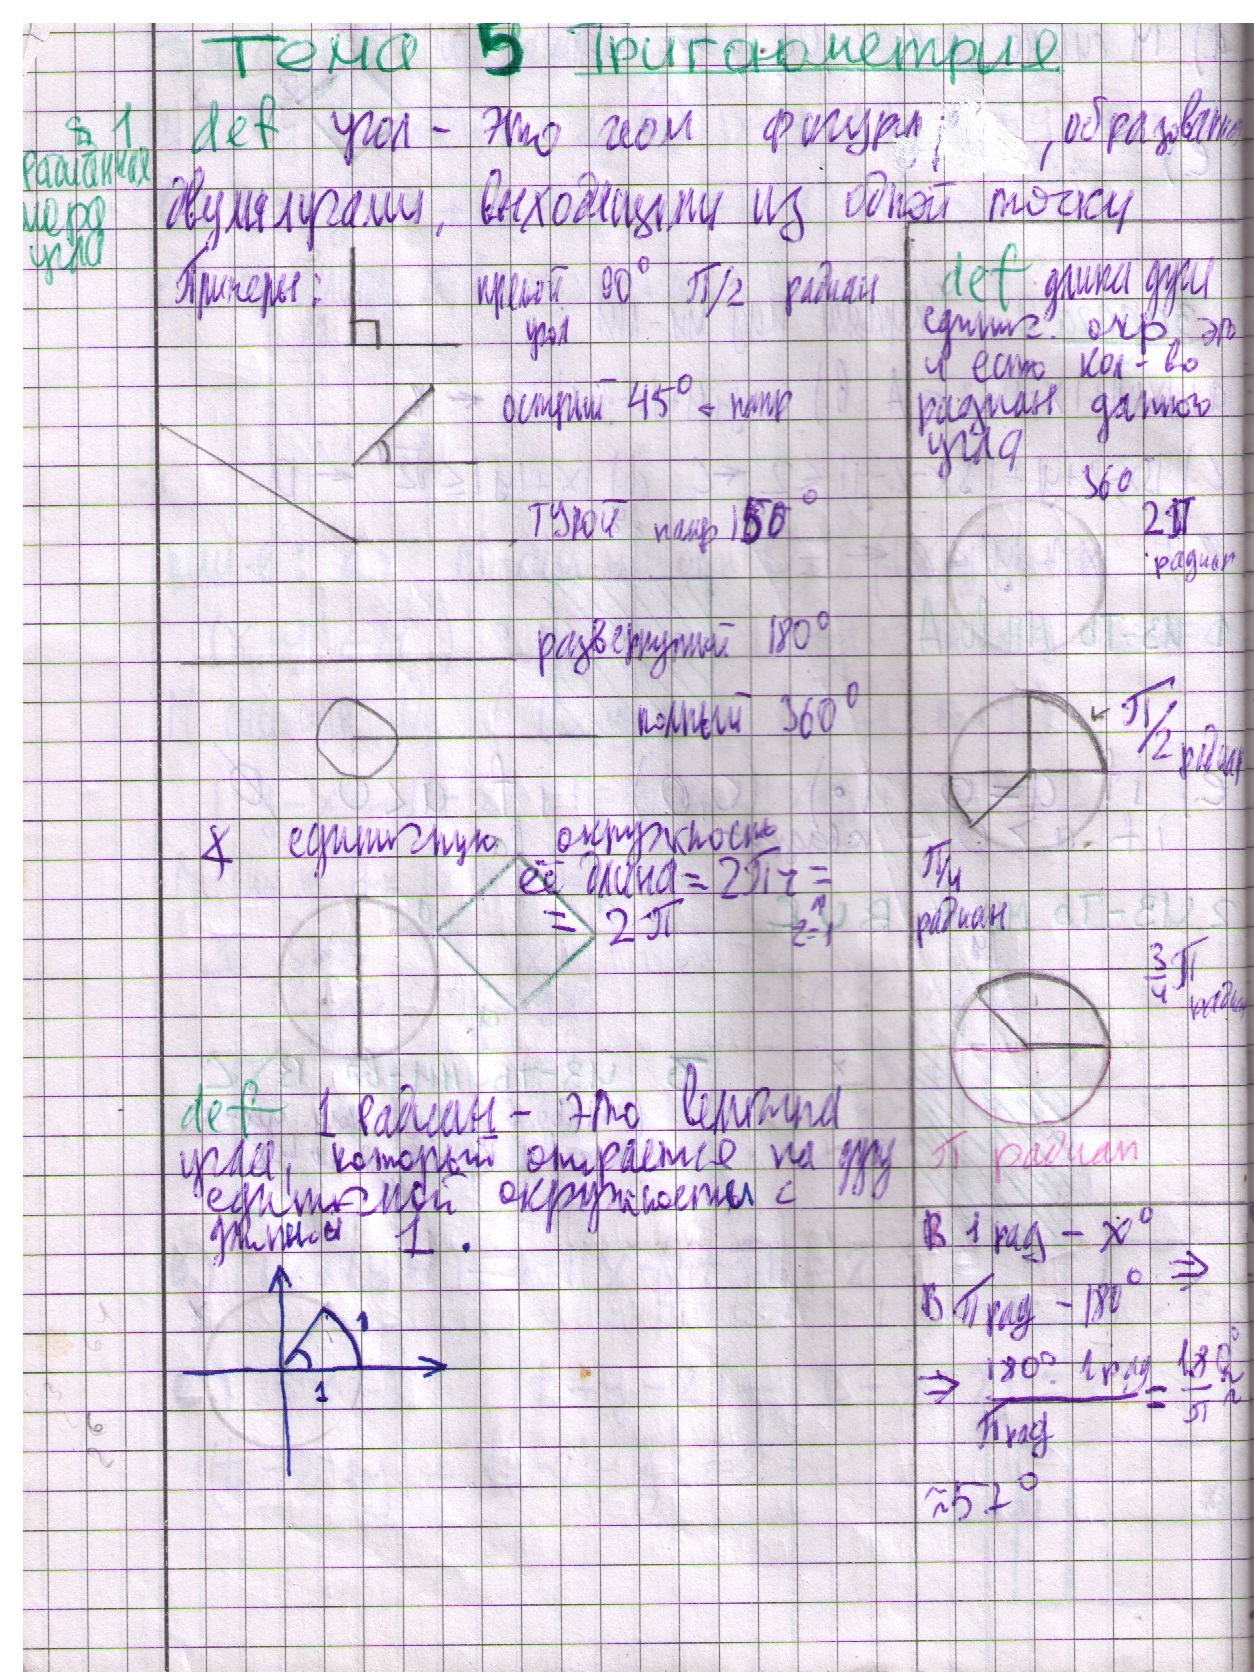 Тема 5 Тригонометрия
§ 1
радианная
мера
угла
def угол - это геом фигура, образованная
двумя лучами, выходящими из одной точки
Примеры:
прямой 90° П/2 радиан
угол
острый 45° напр
тупой напр 150°
развёрнутый 180°
полный 360°
единичную окружность
её длина = 2Пr =
= 2П
r=1
def 1 радиан - это величина
угла, который опирается на дугу
единичной окружности с
длиной 1.
1
1
def длина дуги
единич. окр. это
и есть кол-во
радиан данного
угла
360
2П
радиан
П/2 радиан
П/4
радиан
3/4 П
радиан
П радиан
В 1 рад - x°
⇒
В П рад - 180°
⇒ 180° · 1 рад / П рад = 180° / П ≈
≈57°